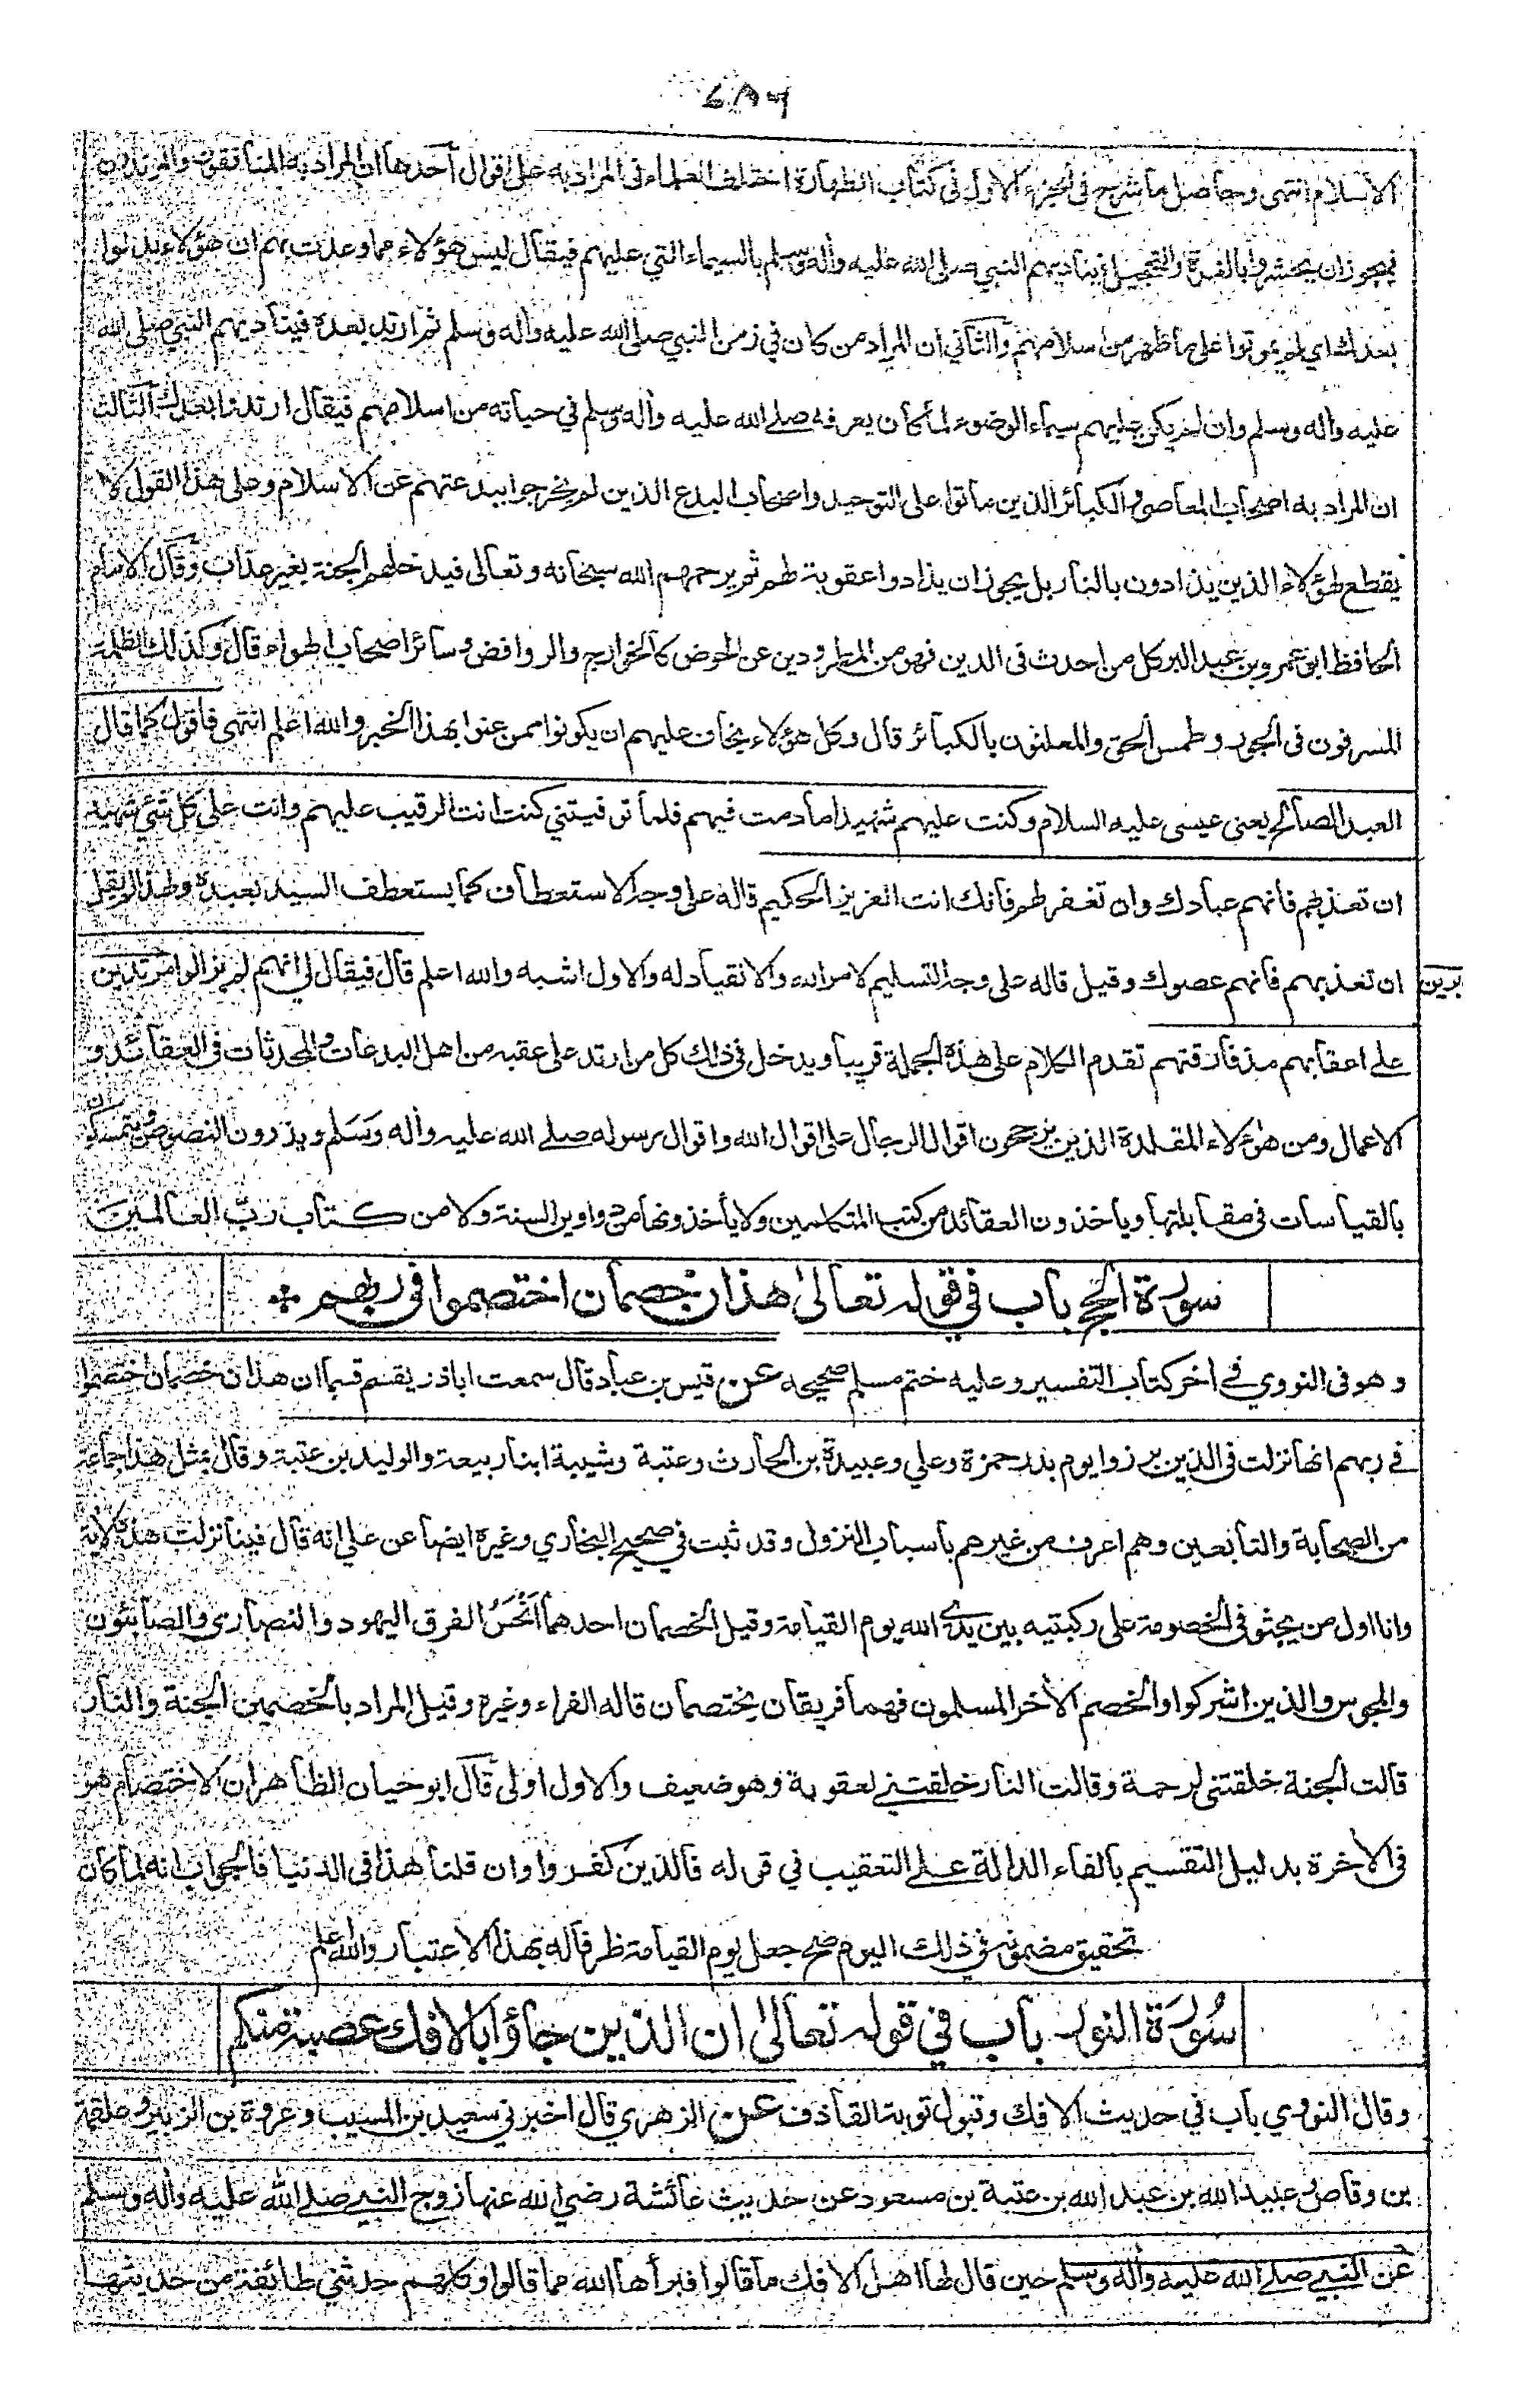 ٤٨٦
الاسلام انتهى وحاصل ما شرح فى الجزء الاول فى كتاب الطهارة اختلف العلماء فى المراد به على اقوال أحدها ان المراد به المنافقون والمرتدون
فيجوز ان يحشروا بالغرة والتحجيل فيناديهم النبي صلى الله عليه وأله وسلم بالسيماء التي عليهم فيقال ليس هؤلاء مما وعدت بهم ان هؤلاء بدلوا
بعدك اي لم يموتوا على ما ظهر من اسلامهم والثاني ان المراد من كان في زمن النبي صلى الله عليه وأله وسلم ثم ارتد بعده فيناديهم النبي صلى الله
عليه وأله وسلم وان لم يكن عليهم سيماء الوضوء لما كان يعرفه صلے الله عليه وأله وسلم في حياته من اسلامهم فيقال ارتدوا بعدك الثالث
ان المراد به اصحاب المعاصي والكبائر الذين ماتوا على التوحيد واصحاب البدع الذين لم يخرجوا ببدعتهم عن الاسلام وعلى هذا القول لا
يقطع لهؤلاء الذين يذادون بالنار بل يجوز ان يذادوا عقوبة لهم ثم يرحمهم الله سبحانه وتعالى فيدخلهم الجنة بغير عذاب وقال الامام
الحافظ ابو عمرو بن عبد البر كل من احدث فى الدين فهو من المطرودين عن الحوض كالخوارج والروافض وسائر اصحاب الهواء قال وكذلك الظلمة
المسرفون فى الجور وطمس الحق والمعلنون بالكبائر قال وكل هؤلاء يخاف عليهم ان يكونوا ممن عنوا بهذا الخبر والله اعلم انتهى فاقول كما قال
العبد الصالح يعني عيسى عليه السلام وكنت عليهم شهيدا ما دمت فيهم فلما توفيتني كنت انت الرقيب عليهم وانت على كل شئ شهيد
ان تعذبهم فانهم عبادك وان تغفر لهم فانك انت العزيز الحكيم قاله على وجه الاستعطاف كما يستعطف السيد بعبده ولهذا لم يقل
ان تعذبهم فانهم عصوك وقيل قاله على وجه التسليم لامر الله والانقياد له والاول اشبه والله اعلم قال فيقال لي انهم لم يزالوا مرتدين
على اعقابهم مذ فارقتهم تقدم الكلام على هذه الجملة قريبا ويدخل في ذلك كل من ارتد على عقبه من اهل البدعات والمحدثات فى العقائد و
الاعمال ومن هؤلاء المقلدة الذين يرجحون اقوال الرجال على اقوال الله واقوال رسوله صلے الله عليه وأله وسلم ويذرون النصوص ويتمسكون
بالقياسات في مقابلتها وياخذون العقائد من كتب المتكلمين ولا يأخذونها من دواوير السنة ولا من كتاب رب العالمين
سورة الحج باب في قوله تعالى هذان خصمان اختصموا في ربهم
وهو فى النووي فے اخر كتاب التفسير وعليه ختم مسلم صحيحه عن قيس بن عباد قال سمعت اباذر يقسم قسما ان هذان خصمان اختصموا
فے ربهم انها نزلت فى الذين برزوا يوم بدر حمزة وعلي وعبيدة بن الحارث وعتبة وشيبة ابنا ربيعة والوليد بن عتبة وقال بمثل هذا جماعة
من الصحابة والتابعين وهم اعرف من غيرهم باسباب النزول وقد ثبت في صحيح البخاري وغيره ايضا عن علي انه قال فينا نزلت هذه الاية
وانا اول من يجثو فى الخصومة على ركبتيه بين يدي الله يوم القيامة وقيل الخصمان احدهما أنجس الفرق اليهود والنصارى والصابئون
والمجوس والذين اشركوا والخصم الأخر المسلمون فهما فريقان يختصمان قاله الفراء وغيره وقيل المراد بالخصمين الجنة والنار
قالت الجنة خلقتنى لرحمة وقالت النار خلقتنے لعقوبة وهو ضعيف والاول اولى قال ابو حيان الظاهر ان الاختصام هو
فى الأخرة بدليل التقسيم بالفاء الدالة علے التعقيب في قوله فالذين كفروا وان قلنا هذا فى الدنيا فالجواب انه لما كان
تحقيق مضمونه في ذلك اليوم صح جعل يوم القيامة ظرفا له بهذا الاعتبار والله اعلم
سورة النور باب في قوله تعالى ان الذين جاؤا بالافك عصبة منكم
وقال النووي باب في حديث الافك وقبول توبة القاذف عن الزهري قال اخبرني سعيد بن المسيب وعروة بن الزبير وعلقمة
بن وقاص وعبيد الله بن عبد الله بن عتبة بن مسعود عن حديث عائشة رضي الله عنها زوج النبے صلے الله عليه وأله وسلم
عن النبے صلے الله عليه وأله وسلم حين قال لها اهل الافك ما قالوا فبرأها الله مما قالوا وكلهم حدثني طائفة من حديثها